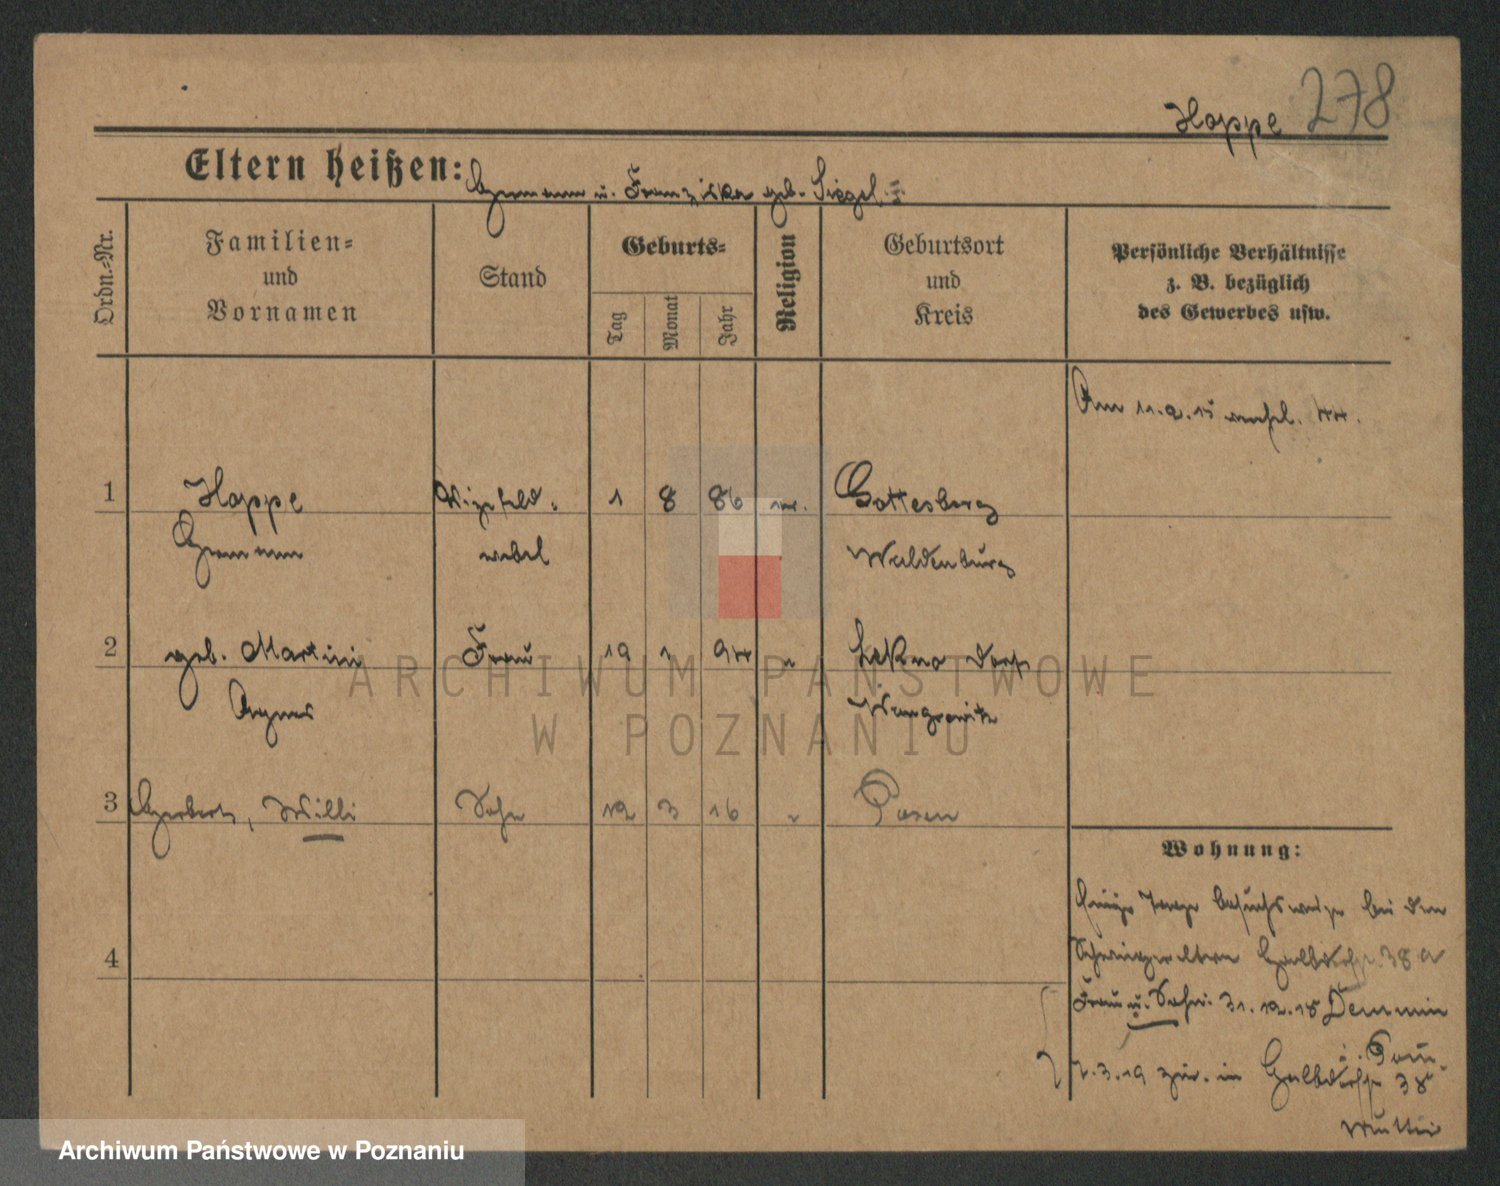 Hoppe 278
Eltern heißen: Hermann u. Franziska geb. Siegel.
Ordn.-Nr.
Familien-
und
Vornamen
Stand
Geburts-
Tag
Monat
Jahr
Religion
Geburtsort
und
Kreis
Persönliche Verhältnisse
z. B. bezüglich
des Gewerbes usw.
Am 11.2.15
1 Hoppe Vizefeld- 1 8 86 Gottesberg
Hermann webel Waldenburg
2 geb. Martini Frau 19 1 94 " Lekno Dorf
Agnes Wongrowitz
3 Herbert, Willi Sohn 12 3 16 " Posen
Wohnung:
Einige Tage besuchsweise bei den
Schwiegereltern Halbdorfstr. 38 a
4
Frau u. Sohn: 31.12.18 Demmin
i. Pom.
7.3.19 zur. in Halbdorfstr 38
Mutter
ARCHIWUM PAŃSTWOWE
W POZNANIU
Archiwum Państwowe w Poznaniu